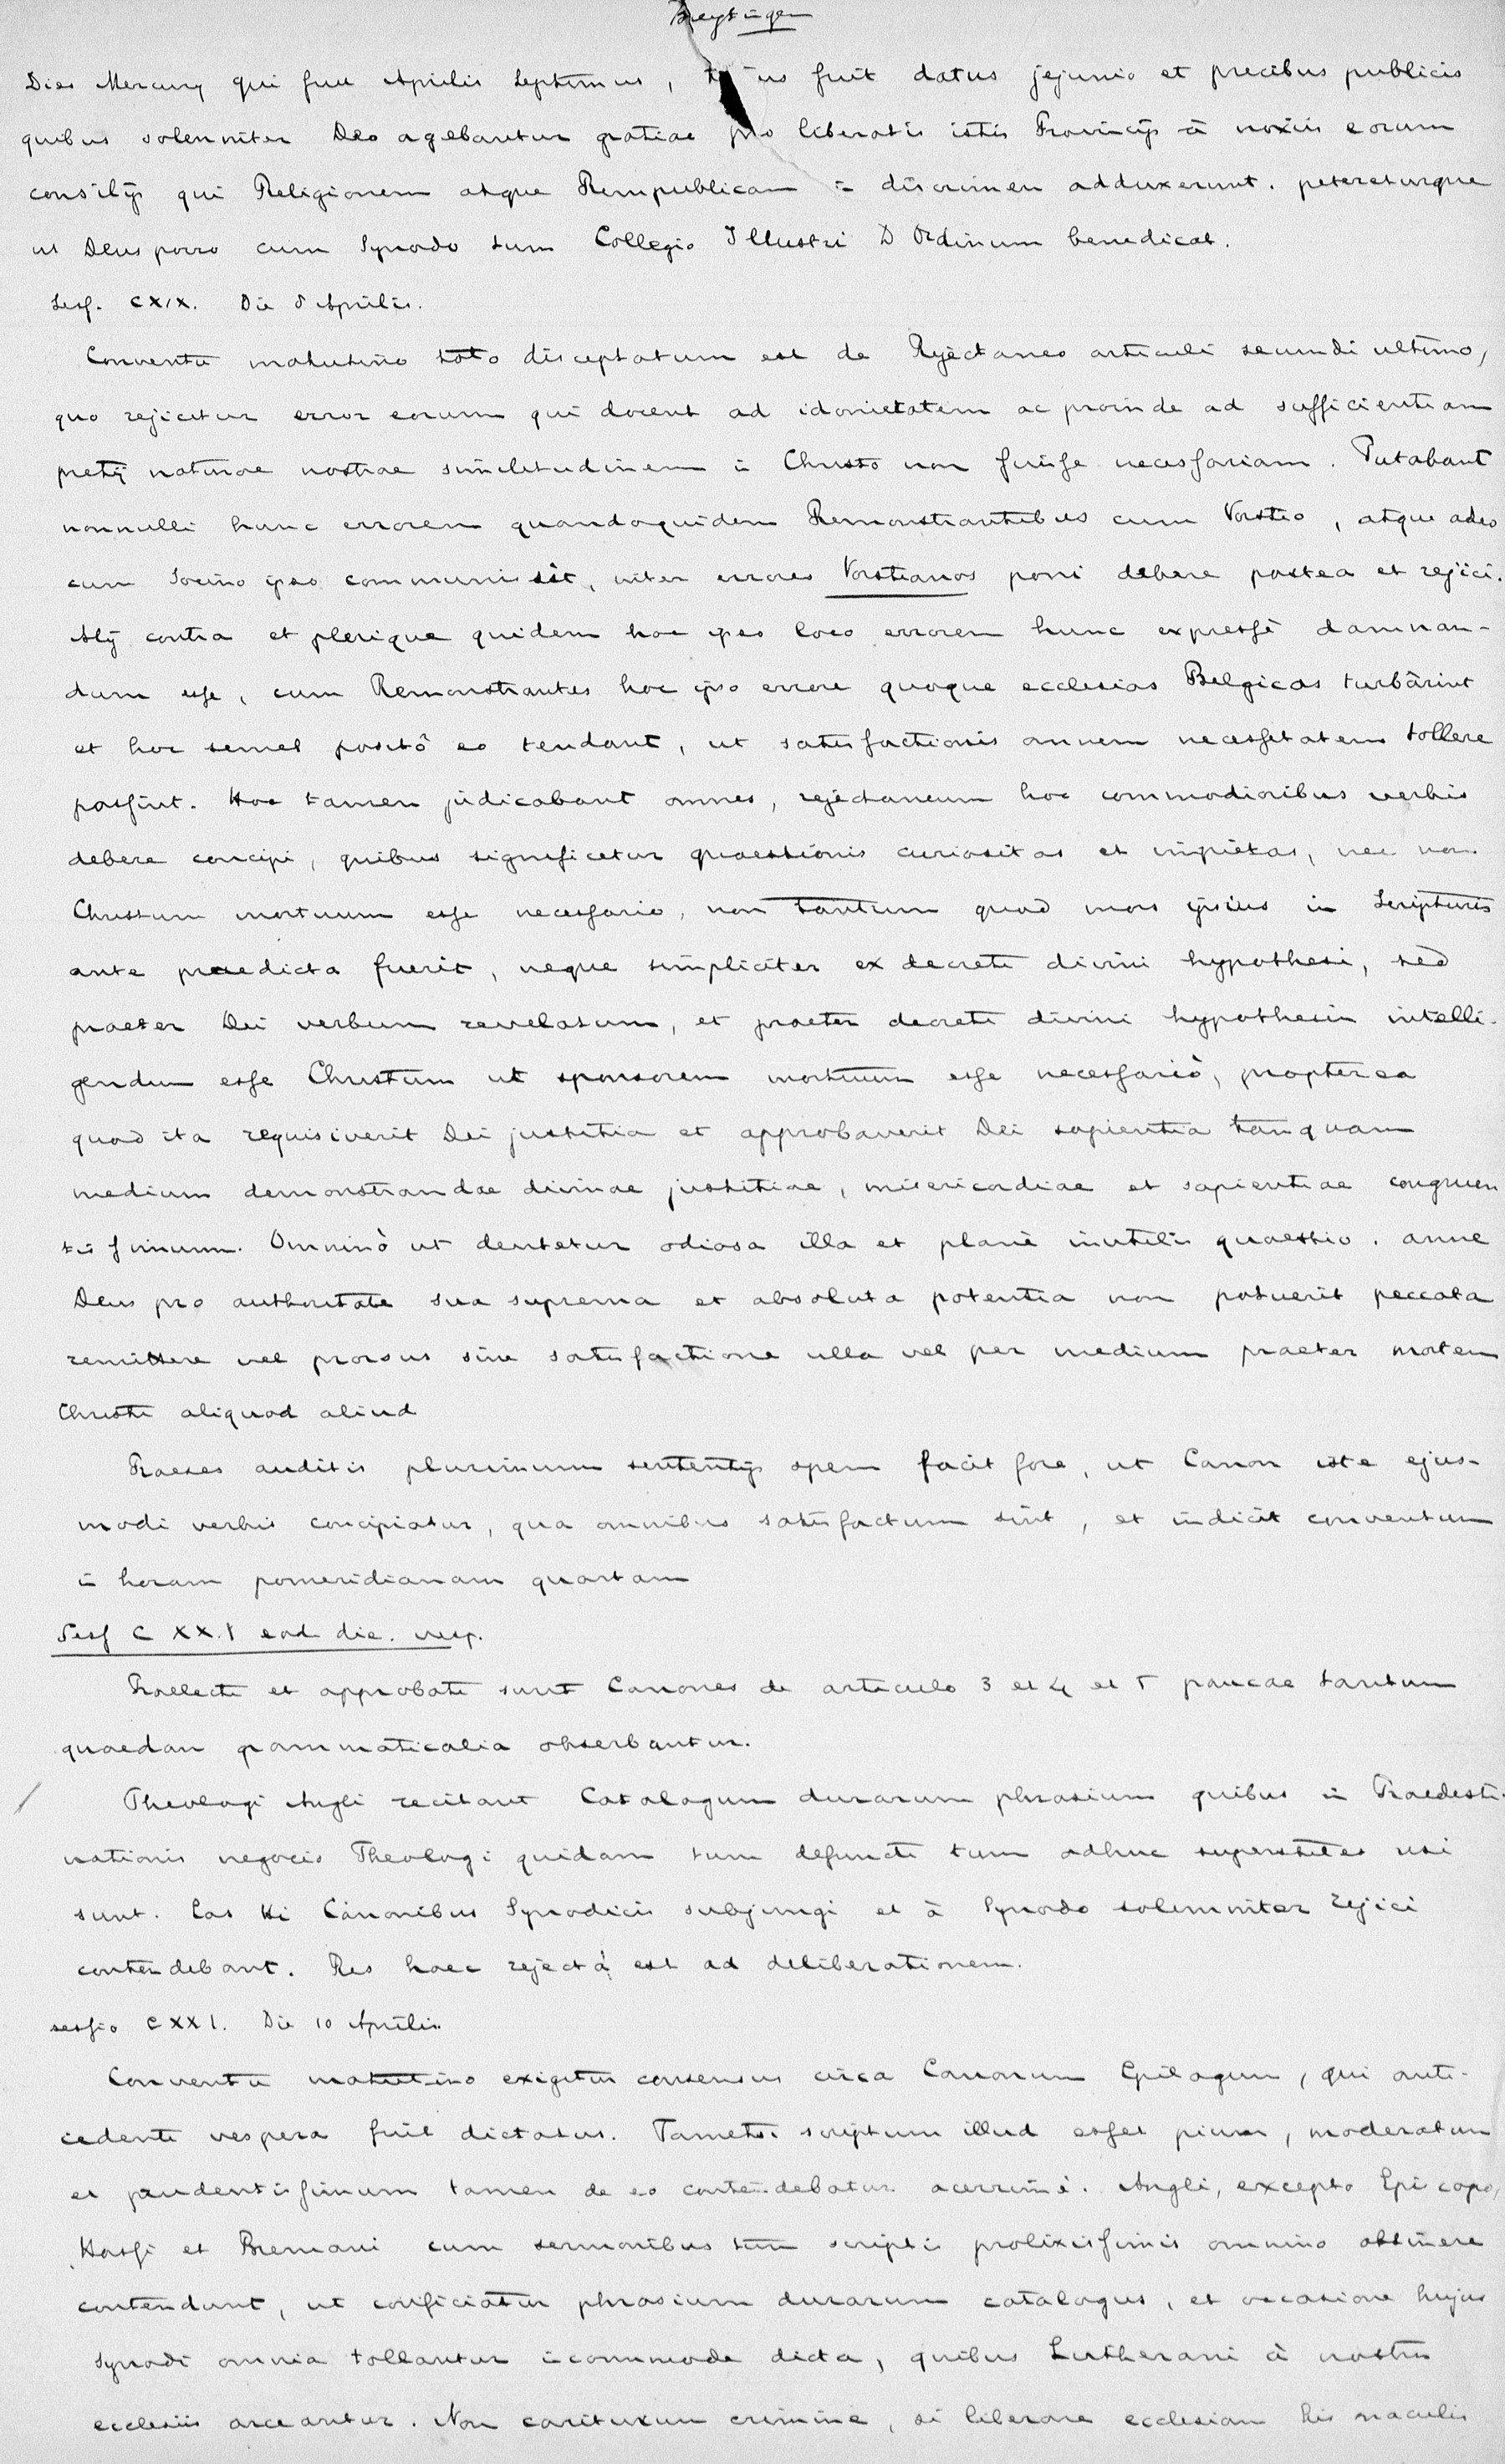 Breytingen
Dies Mercurij qui fuit Aprilis septimus, us fuit datus jejunio et precibus publicis
quibus solenniter Deo agebantur gratiae pro liberatis istis Provincijs à noxiis eorum
consilijs qui Religionem atque Rempublicam in discrimen adduxerunt. petereturque
ut Deus porro cum Synodo tum Collegio Illustri D Ordinum benedicat.
Sess. CXIX. Die 8 Aprilis.
Conventu matutino toto disceptatum est de Rejectaneo articuli secundi ultimo,
quo rejicitur error eorum qui docent ad idonietatem ac proinde ad sufficientiam
pretij naturae nostrae similitudinem in Christo non fuisse necessariam. Putabant
nonnulli hunc errorem quandoquidem Remonstrantibus cum Vorstio, atque adeo
cum Socino ipso communis sit, inter errores Vorstianos poni debere postea et rejici.
Alij contra et plerique quidem hoc ipso loco errorem hunc expressè damnan-
dum esse, cum Remonstrantes hoc ipso errore quoque ecclesias Belgicas turbârint
et hoc semel positô eo tendant, ut satisfactionis omnem necessitatem tollere
possint. Hoc tamen judicabant omnes, rejectaneum hoc commodioribus verbis
debere concipi, quibus significetur quaestionis curiositas et impietas, nec non
Christum mortuum esse necessario, non tantum quod mors ipsius in Scripturis
ante praedicta fuerit, neque simpliciter ex decreti divini hypothesi, sed
praeter Dei verbum revelatum, et praeter decreti divini hypothesin intelli-
gendum esse Christum ut sponsorem mortuum esse necessariò, propterea
quod ita requisiverit Dei justitia et approbaverit Dei sapientia tanquam
medium demonstrandae divinae justitiae, misericordiae et sapientiae congruen
tissimum. Omninò ut devitetur odiosa illa et planè inutilis quaestio. anne
Deus pro authoritate sua suprema et absoluta potentia non potuerit peccata
remittere vel prorsus sine satisfactione ulla vel per medium praeter mortem
Christi aliquod aliud
Praeses auditis plurimum sententijs spem facit fore, ut Canon iste ejus-
modi verbis concipiatur, qua omnibus satisfactum sint, et indicit conventum
in horam pomeridianam quartam
Sess C XX.I eod. die. vesp.
Praelecti et approbati sunt Canones de articulo 3 et 4 et 5 paucae tantum
quaedam grammaticalia obserbantur.
Theologi Angli recitant Catalogum durarum phrasium quibus in Praedesti-
nationis negocio Theologi quidam tum defuncti tum adhuc superstites usi
sunt. Eas Hi Canonibus Synodicis subjungi et à Synodo solemniter rejici
contendebant. Res haec rejecta est ad deliberationem.
sessio CXXI. Die 10 Aprilis.
Conventu matutino exigitur consensus circa Canonum Epilogum, qui ante-
cedenti vespera fuit dictatus. Tametsi scriptum illud esset pium, moderatum
et prudentissimum tamen de eo contendebatur acerrimè. Angli, excepto Episcopo,
Hassi et Bremani cum sermonibus tum scriptis prolixissimis omnino obtinere
contendunt, ut conficiatur phrasium durarum catalogus, et occasione hujus
synodi omnia tollantur incommode dicta, quibus Lutherani à nostris
ecclesiis arceantur. Non carituram crimine, si liberare ecclesiam his maculis